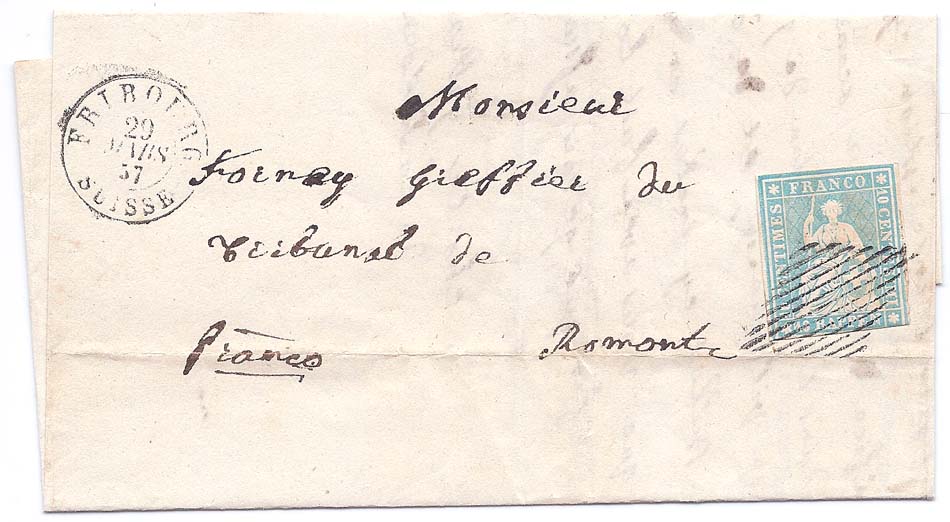 FRIBOURG
29
MARS
57
SUISSE
Monsieur
Fornay Greffier du
Tribunal de
franco Romont
FRANCO
10 CENTIMES
10 CENTESIMI
10 RAPPEN